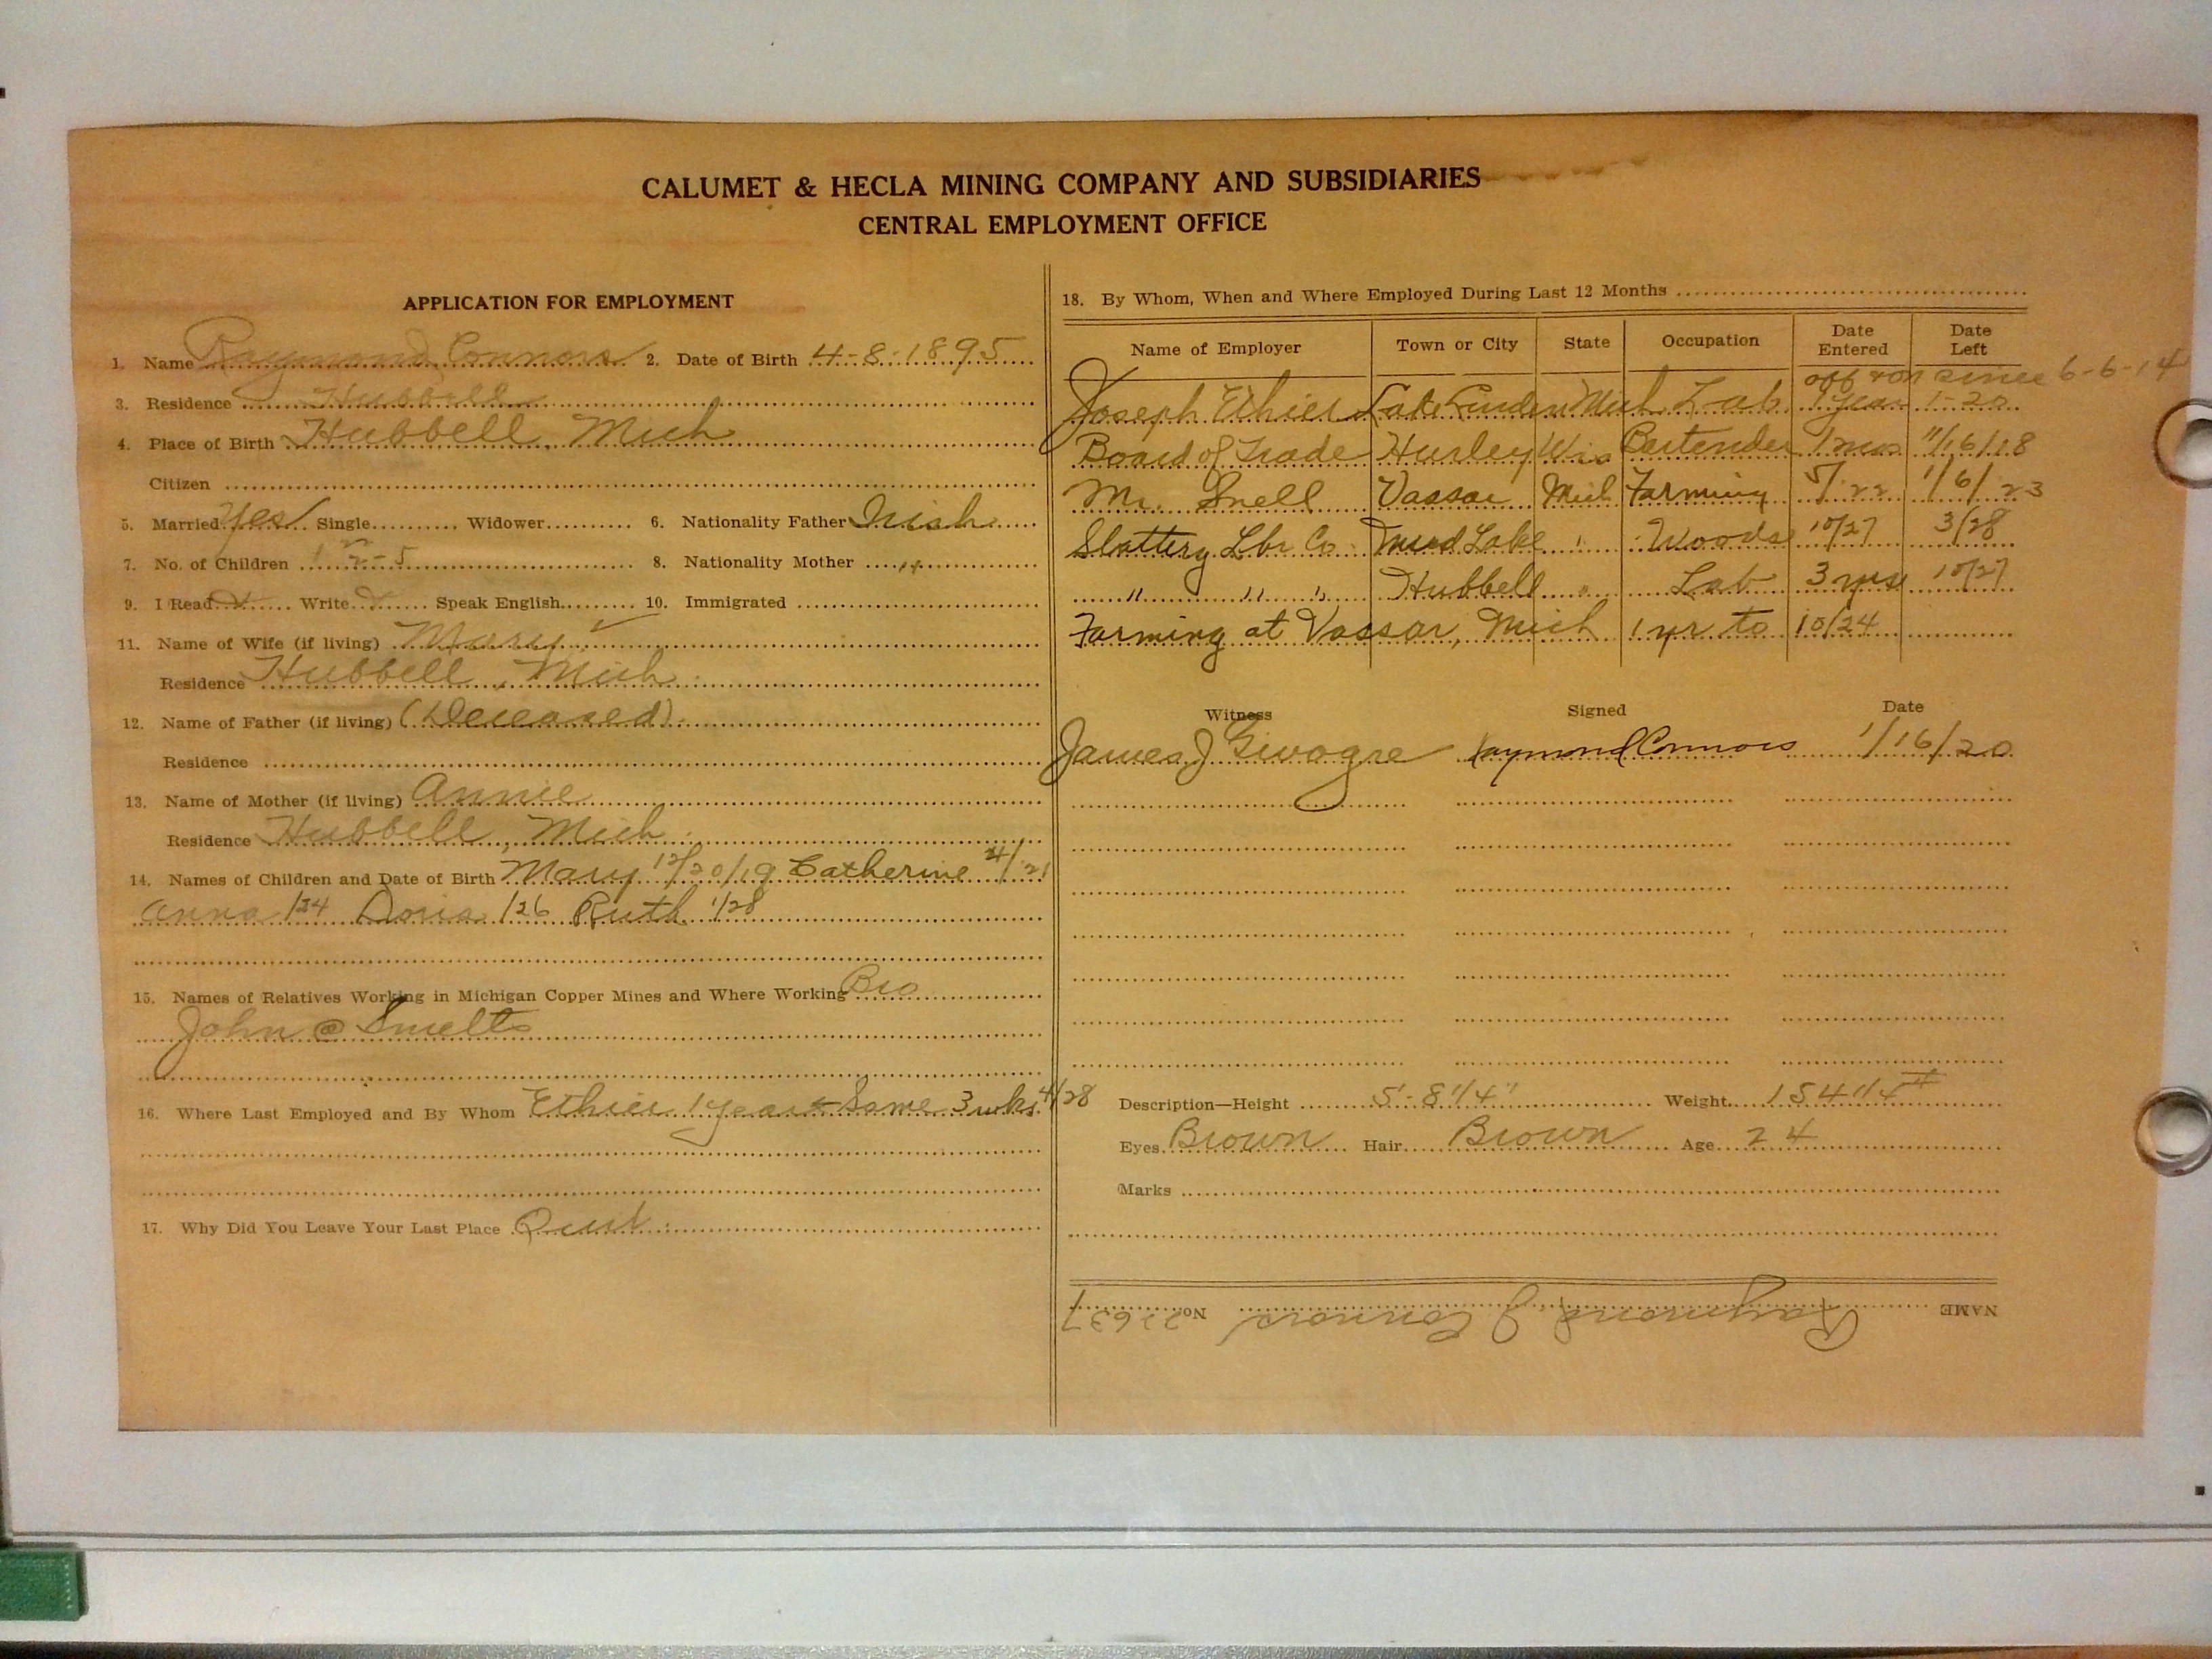 CALUMET & HECLA MINING COMPANY AND SUBSIDIARIES
CENTRAL EMPLOYMENT OFFICE
APPLICATION FOR EMPLOYMENT
1. Name Raymond Connors 2. Date of Birth 4-8-1895
3. Residence Hubbell
4. Place of Birth Hubbell, Mich
Citizen
5. Married Yes Single Widower 6. Nationality Father Irish
7. No. of Children 1 2-5 8. Nationality Mother "
9. I Read Write Speak English 10. Immigrated
11. Name of Wife (if living) Mary
Residence Hubbell, Mich
12. Name of Father (if living) (Deceased)
Residence
13. Name of Mother (if living) Annie
Residence Hubbell, Mich
14. Names of Children and Date of Birth Mary 12/20/19 Catherine 4/21
Anna /24 Doris /26 Ruth 1/28
15. Names of Relatives Working in Michigan Copper Mines and Where Working Bro
John @ Smelts
16. Where Last Employed and By Whom Ethier 1 year Same 3 wks 4/28
17. Why Did You Leave Your Last Place Quit
18. By Whom, When and Where Employed During Last 12 Months
Name of Employer Town or City State Occupation Date Entered Date Left
off & on since 6-6-14
Joseph Ethier Lake Linden Mich Lab. 1 year 1-20
Board of Trade Hurley Wis Bartender 1 mos 11/16/18
Mr. Snell Vassar Mich Farming 5/22 1/6/23
Slattery Lbr Co Mud Lake " Woods 10/27 3/28
" " " Hubbell " Lab 3 yrs 10/27
Farming at Vassar, Mich 1 yr to 10/24
Witness Signed Date
James J Raymond Connors 1/16/20
Description—Height 5'-8 1/4" Weight 154 1/4 #
Eyes Brown Hair Brown Age 24
Marks
NAME Raymond J Connors No. 22637